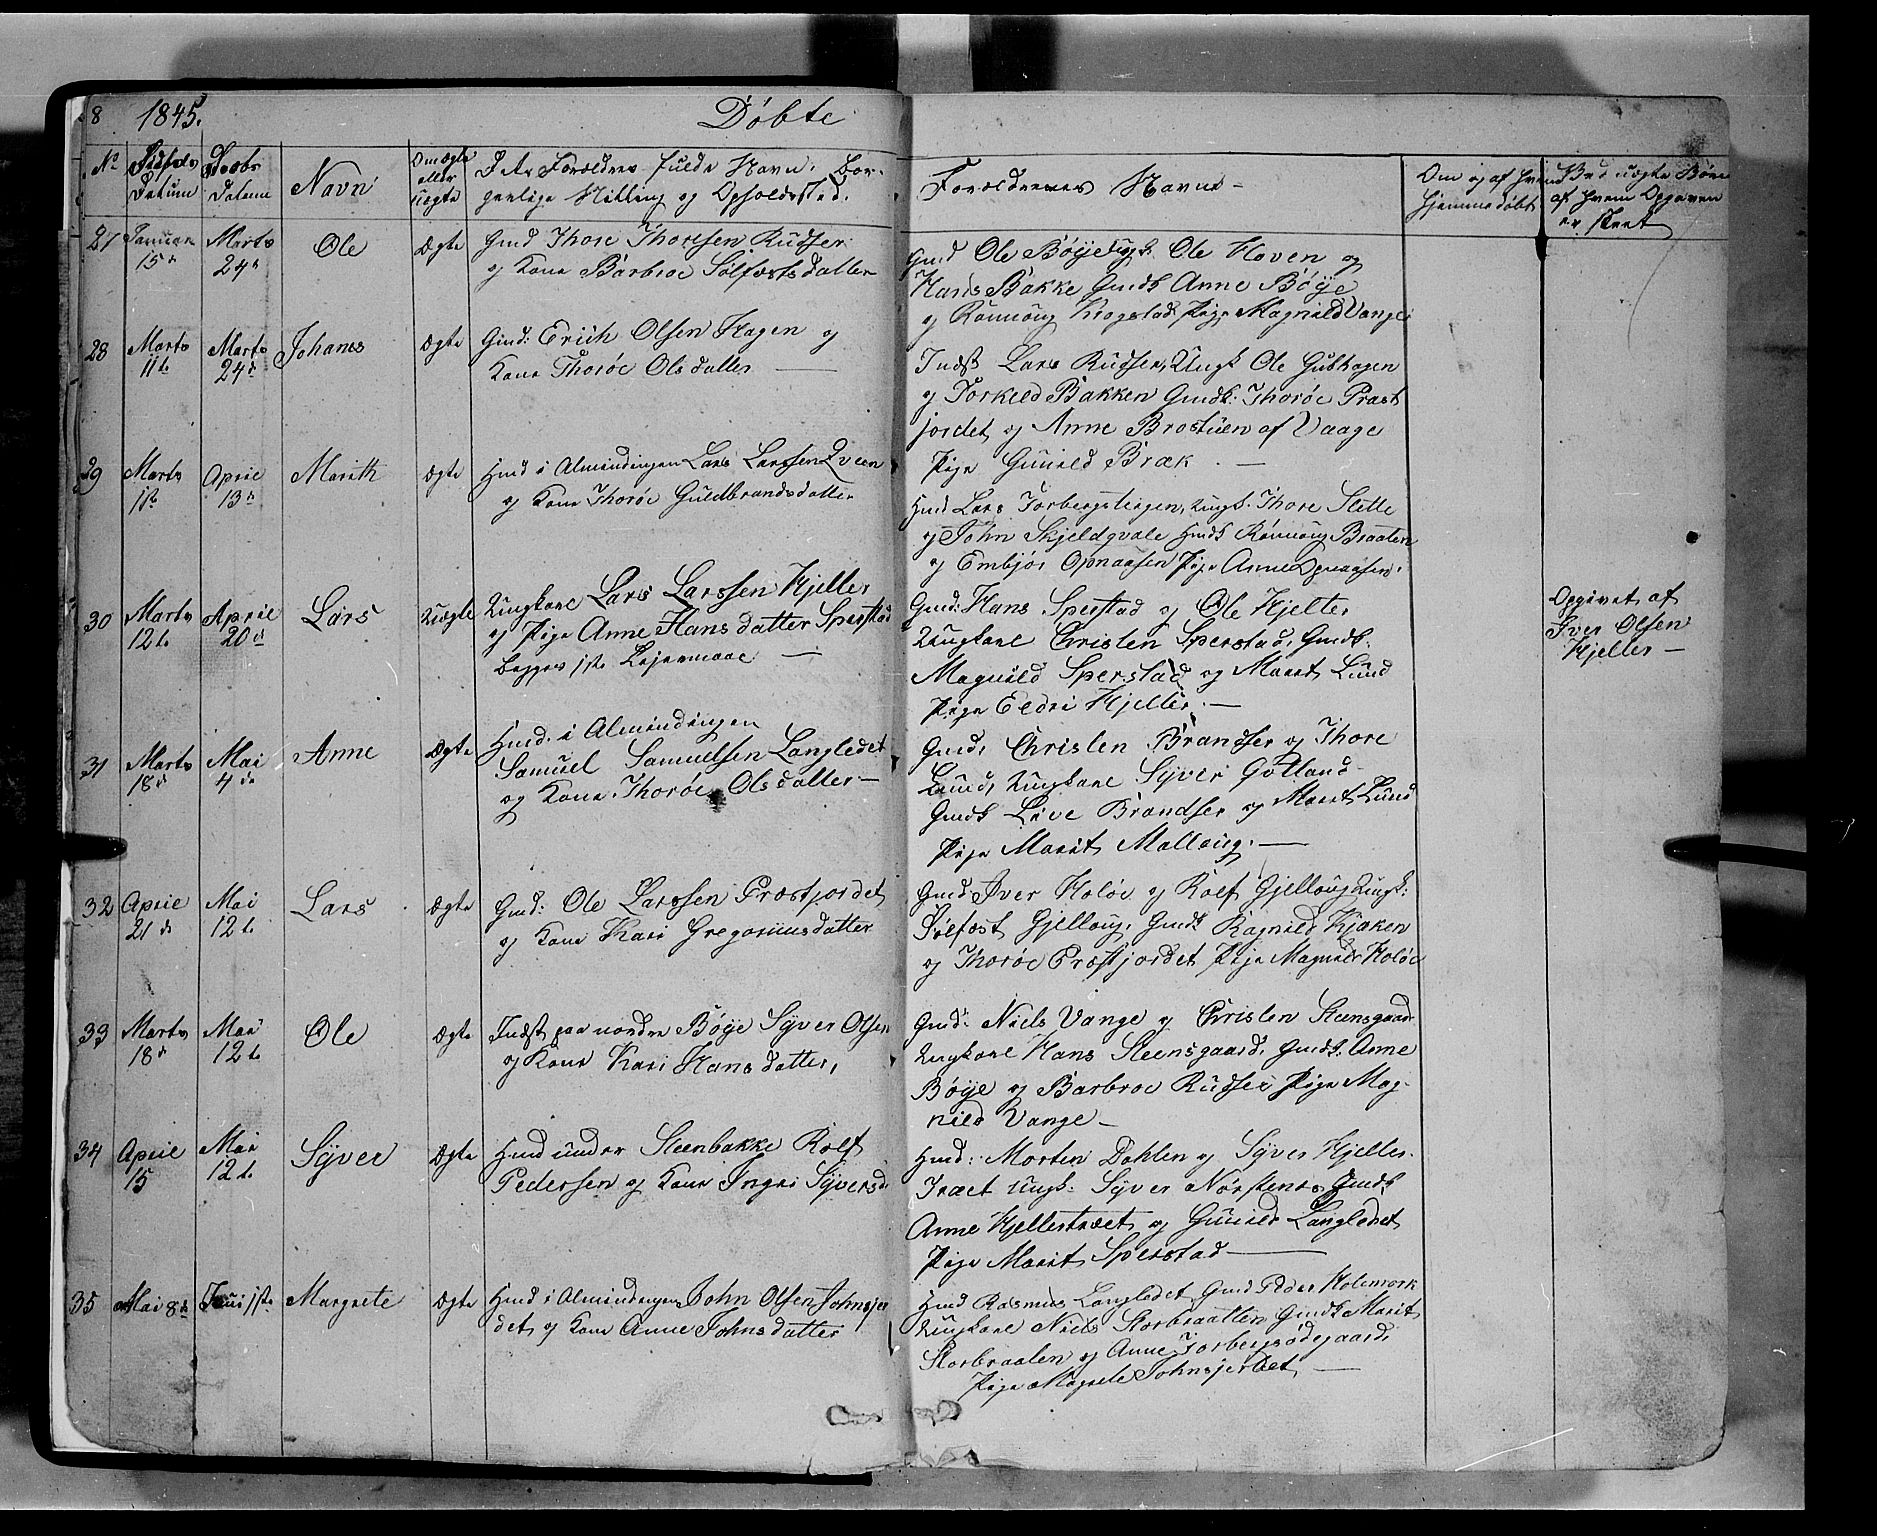 8 1845. Døbte
No Fødsels Datum Daabs Datum Navn Om ægte eller uægte Foreldres fulde Navn, Bor-
gerlige Stilling og Opholdssted. Foreldrenes Navne - Om og af hvem hjemmedøbt Ved uægte Børn af hvem Opgaven er skeet
27 Januar 15de Marts 24de Ole Ægte Gmd Thore Thoresen Rudser
og Kone Barbroe Sølfæstsdatter
Gmd Ole Bøye Ungk. Ole Hoven og
Hans Bakke Gmdk Anne Bøye
og Rønnoug Krogstad Pige Magnild Vange
28 Marts 11te Marts 24de Johanes Ægte Gmd: Erich Olsen Hagen og
Kone Thoröe Olsdatter —
Indst Lars Rudser, Ungk Ole Gubhagen
og Torkild Bakken Gmdk: Thoröe Præst
jordet og Anne Brostuen af Vaage
Pige Gunild Bræk. —
29 Marts 1ste April 13de Marith Ægte Hmd i Almindingen Lars Larssen Qveen
og Kone Thoröe Guldbrandsdatter
Hmd Lars Torbergsteigen, Ungk. Thore Slette
og John Skjeldqvale Hmdk Rønnoug Braaten
og Embjør Opnaasen Pige Anne Opnaasen.
30 Marts 12te April 20de Lars Uægte Ungkarl Lars Larssen Hjelle
og Pige Anne Hansdatter Sperstad
begges 1ste Leiermaal —
Gmd: Hans Sperstad og Ole Hjelle
Ungkarl Christen Sperstad, Gmdk.
Magnild Sperstad og Marit Lund
Pige Eldri Hjelle. —
Opgivet af
Iver Olsen
Hjelle —
31 Marts 18de Mai 4de Anne Ægte Hmd. i Almindingen
Samuel Samuelsen Langledet
og Kone Thoröe Olsdatter —
Gmd: Christen Brandser og Thore
Lund, Ungkarl Syver Gotland
Gmdk Live Brandser og Marit Lund
Pige Marit Malloug. —
32 April 21de Mai 12te Lars Ægte Gmd: Ole Larssen Præstjordet
og Kone Kari Gregoriusdatter
Gmd Iver Holöe og Rolf Gjelloug Ungk:
Sølfæst Gjelloug, Gmdk Ragnild Kjæken
og Thoröe Præstjordet Pige Magnild Holöe
33 Marts 18de Mai 12te Ole Ægte Indst paa nordre Bøye Syver Olsen
og Kone Kari Hansdatter,
Gmd: Niels Vange og Christen Steensgaard
Ungkarl Hans Steensgaard, Gmdk. Anne
Bøye og Barbroe Rudser Pige Mag-
nild Vange —
34 April 15 Mai 12te Syver Ægte Hmd under Steenbakke Rolf
Pedersen og Kone Ingri Syversd
Hmd: Morten Dahlen og Syver Hjelle-
træet Ungk: Syver Nörstenes Gmdk
Anne Hjelletræet og Gunild Langledet
Pige Marit Sperstad —
35 Mai 8de Juni 1ste Margrete Ægte Hmd i Almindingen John Olsen Johnsjor
det og Kone Anne Johnsdatter
Hmd Rasmus Langledet Gmd Peder Holemork
Ungkarl Niels Storbraatten Gmdk Marit
Storbraaten og Anne Torbergsödegaard,
Pige Magrete Johnsjordet —